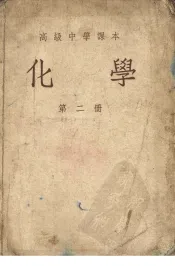 高級中學課本
化學
第二册